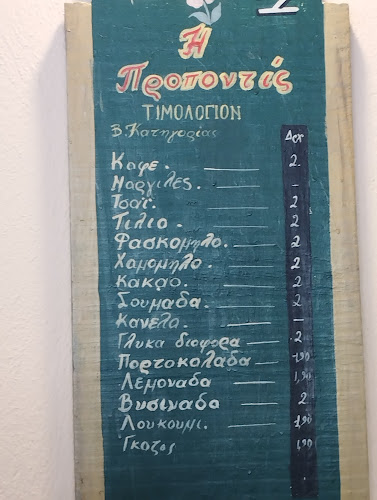 Η
Προποντίς
ΤΙΜΟΛΟΓΙΟΝ
Β. Κατηγορίας
Δρχ
Καφε. 2
Ναργιλές. –
Τσαϊ. 2
Τιλιο. 2
Φασκομηλο. 2
Χαμομηλο. 2
Κακαο. 2
Σουμαδα. 2
Κανελα. –
Γλυκα διαφορα 2
Πορτοκολαδα 1,90
Λεμοναδα 1,90
Βυσιναδα 2
Λουκουμι. 1,90
Γκαζοζ 1,90